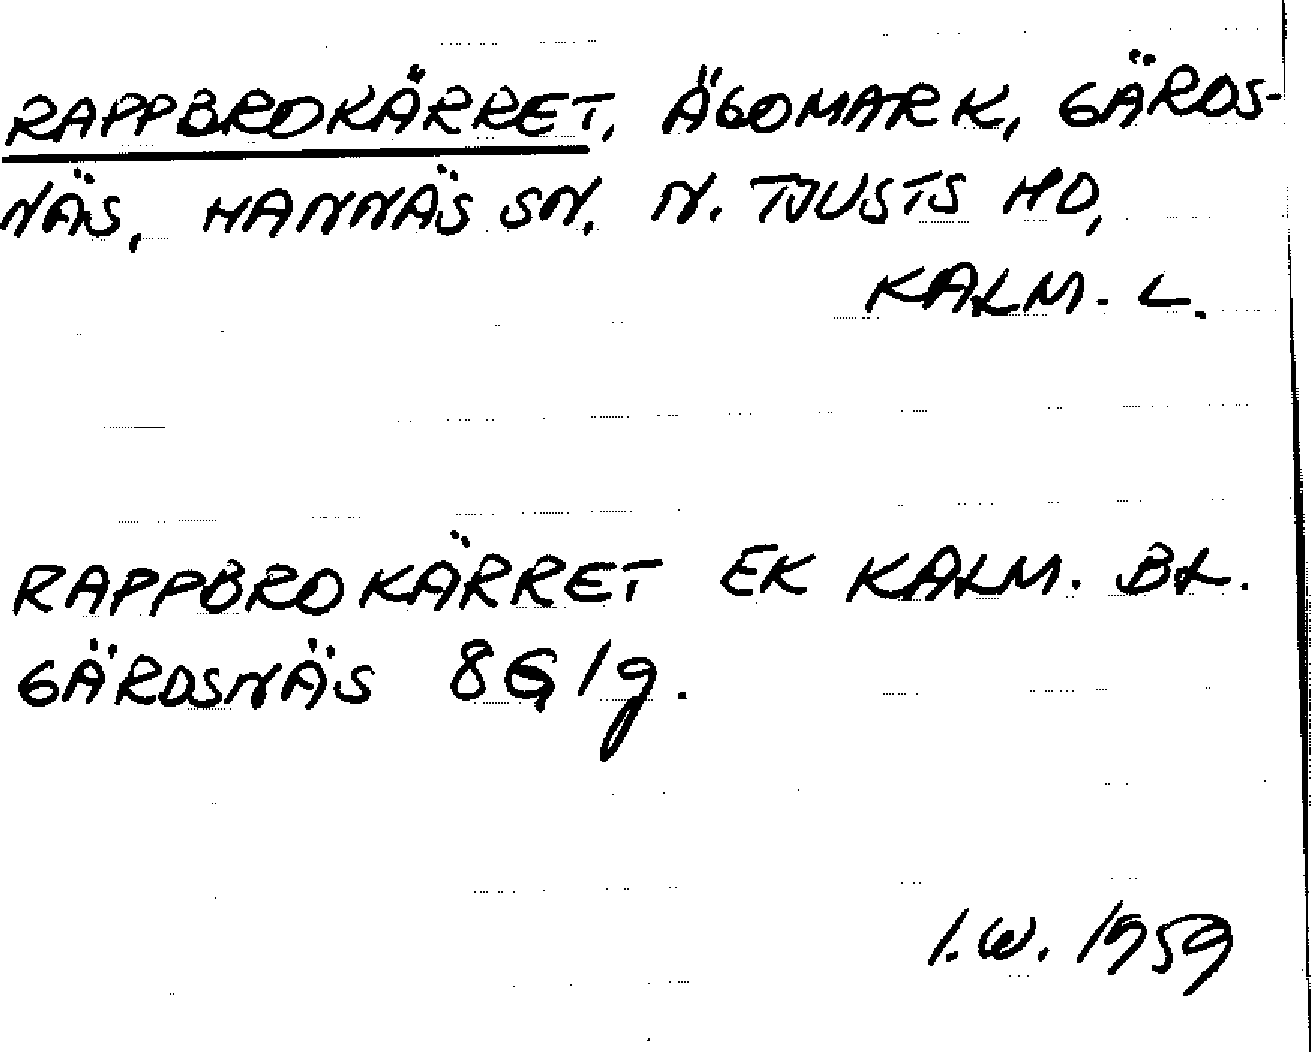 RAPPBROKÄRRET, ÄGOMARK, GÄRDS-
NÄS, HANNÄS SN, N. TJUSTS HD,
KALM. L.
RAPPBROKÄRRET EK KALM. BL.
GÄRDSNÄS 8G1g.
I.W. 1959